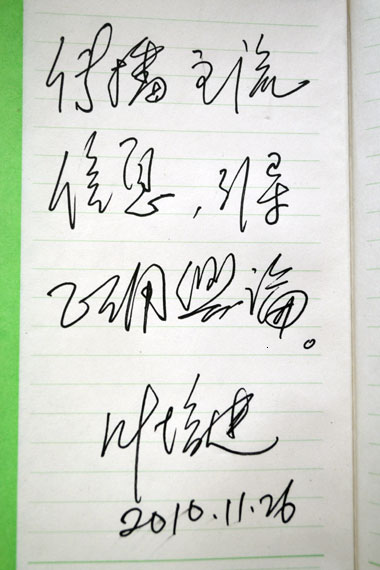 传播主流
信息,引导
正确舆论。
叶培建
2010.11.26